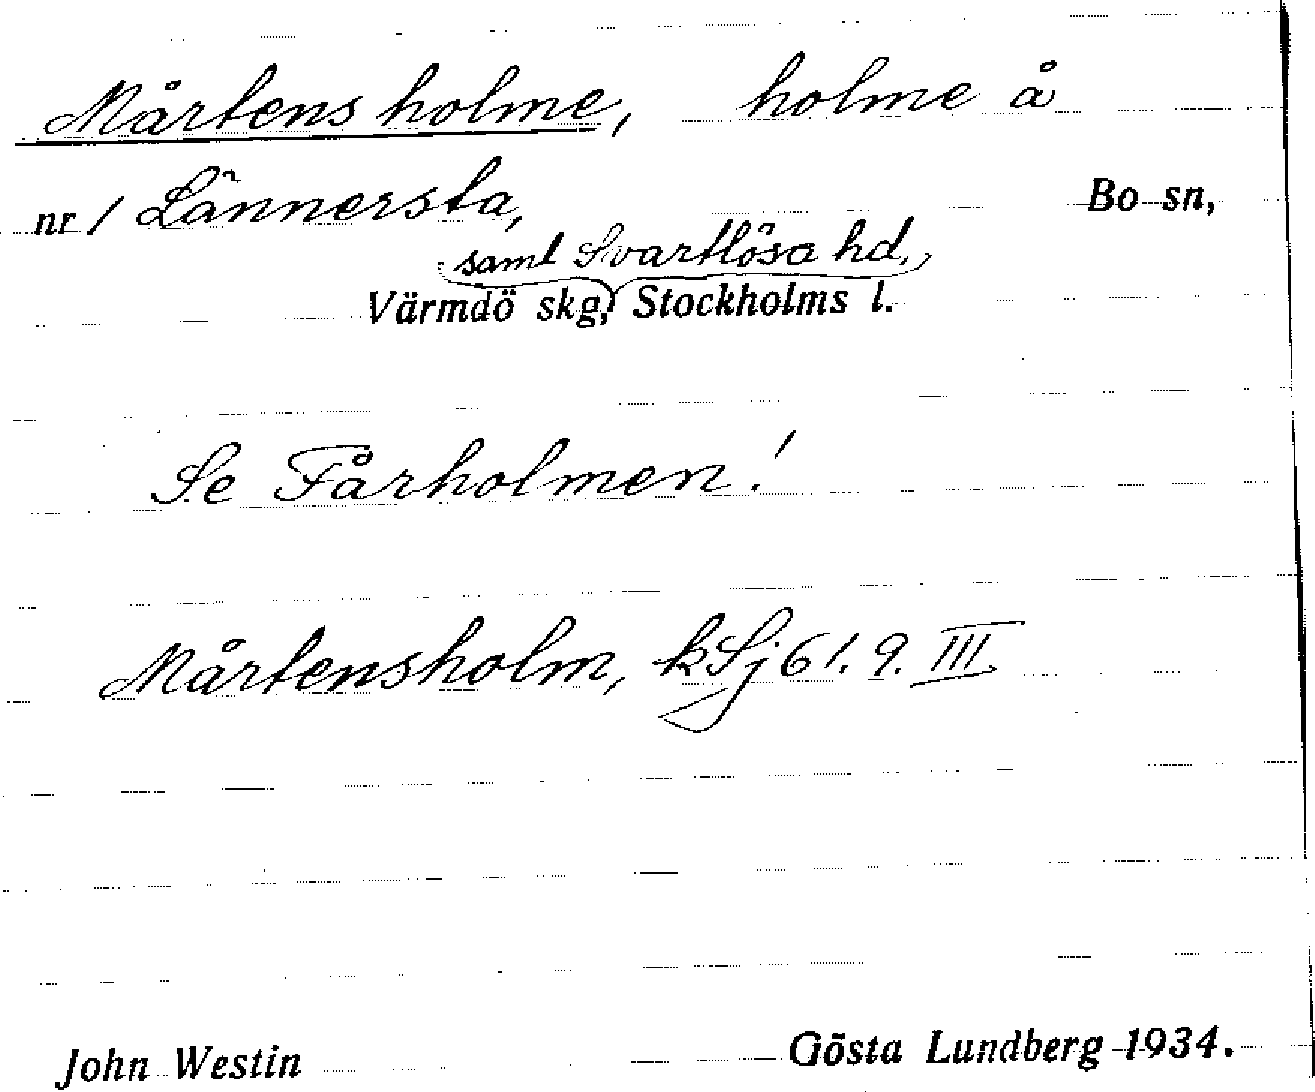 Mårtens holme, holme å
nr 1 Lännersta, Bo sn,
samt Svartlösa hd.,
Värmdö skg, Stockholms l.
Se Fårholmen!
Mårtensholm, kSj 61.9.III
John Westin Gösta Lundberg 1934.